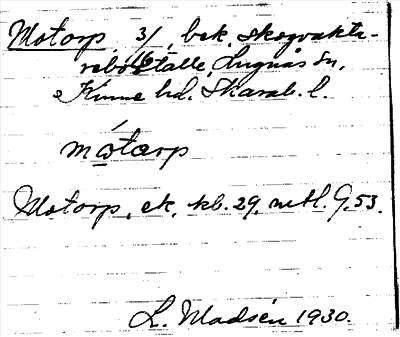 Motorp, 3/16, bok, skogvakta-
reboställe, Lugnås sn,
Kinne hd. Skarab. l.
mотоrp
Motorp, ek. kb. 29. mtl. 9.53.
L. Madsén 1930.